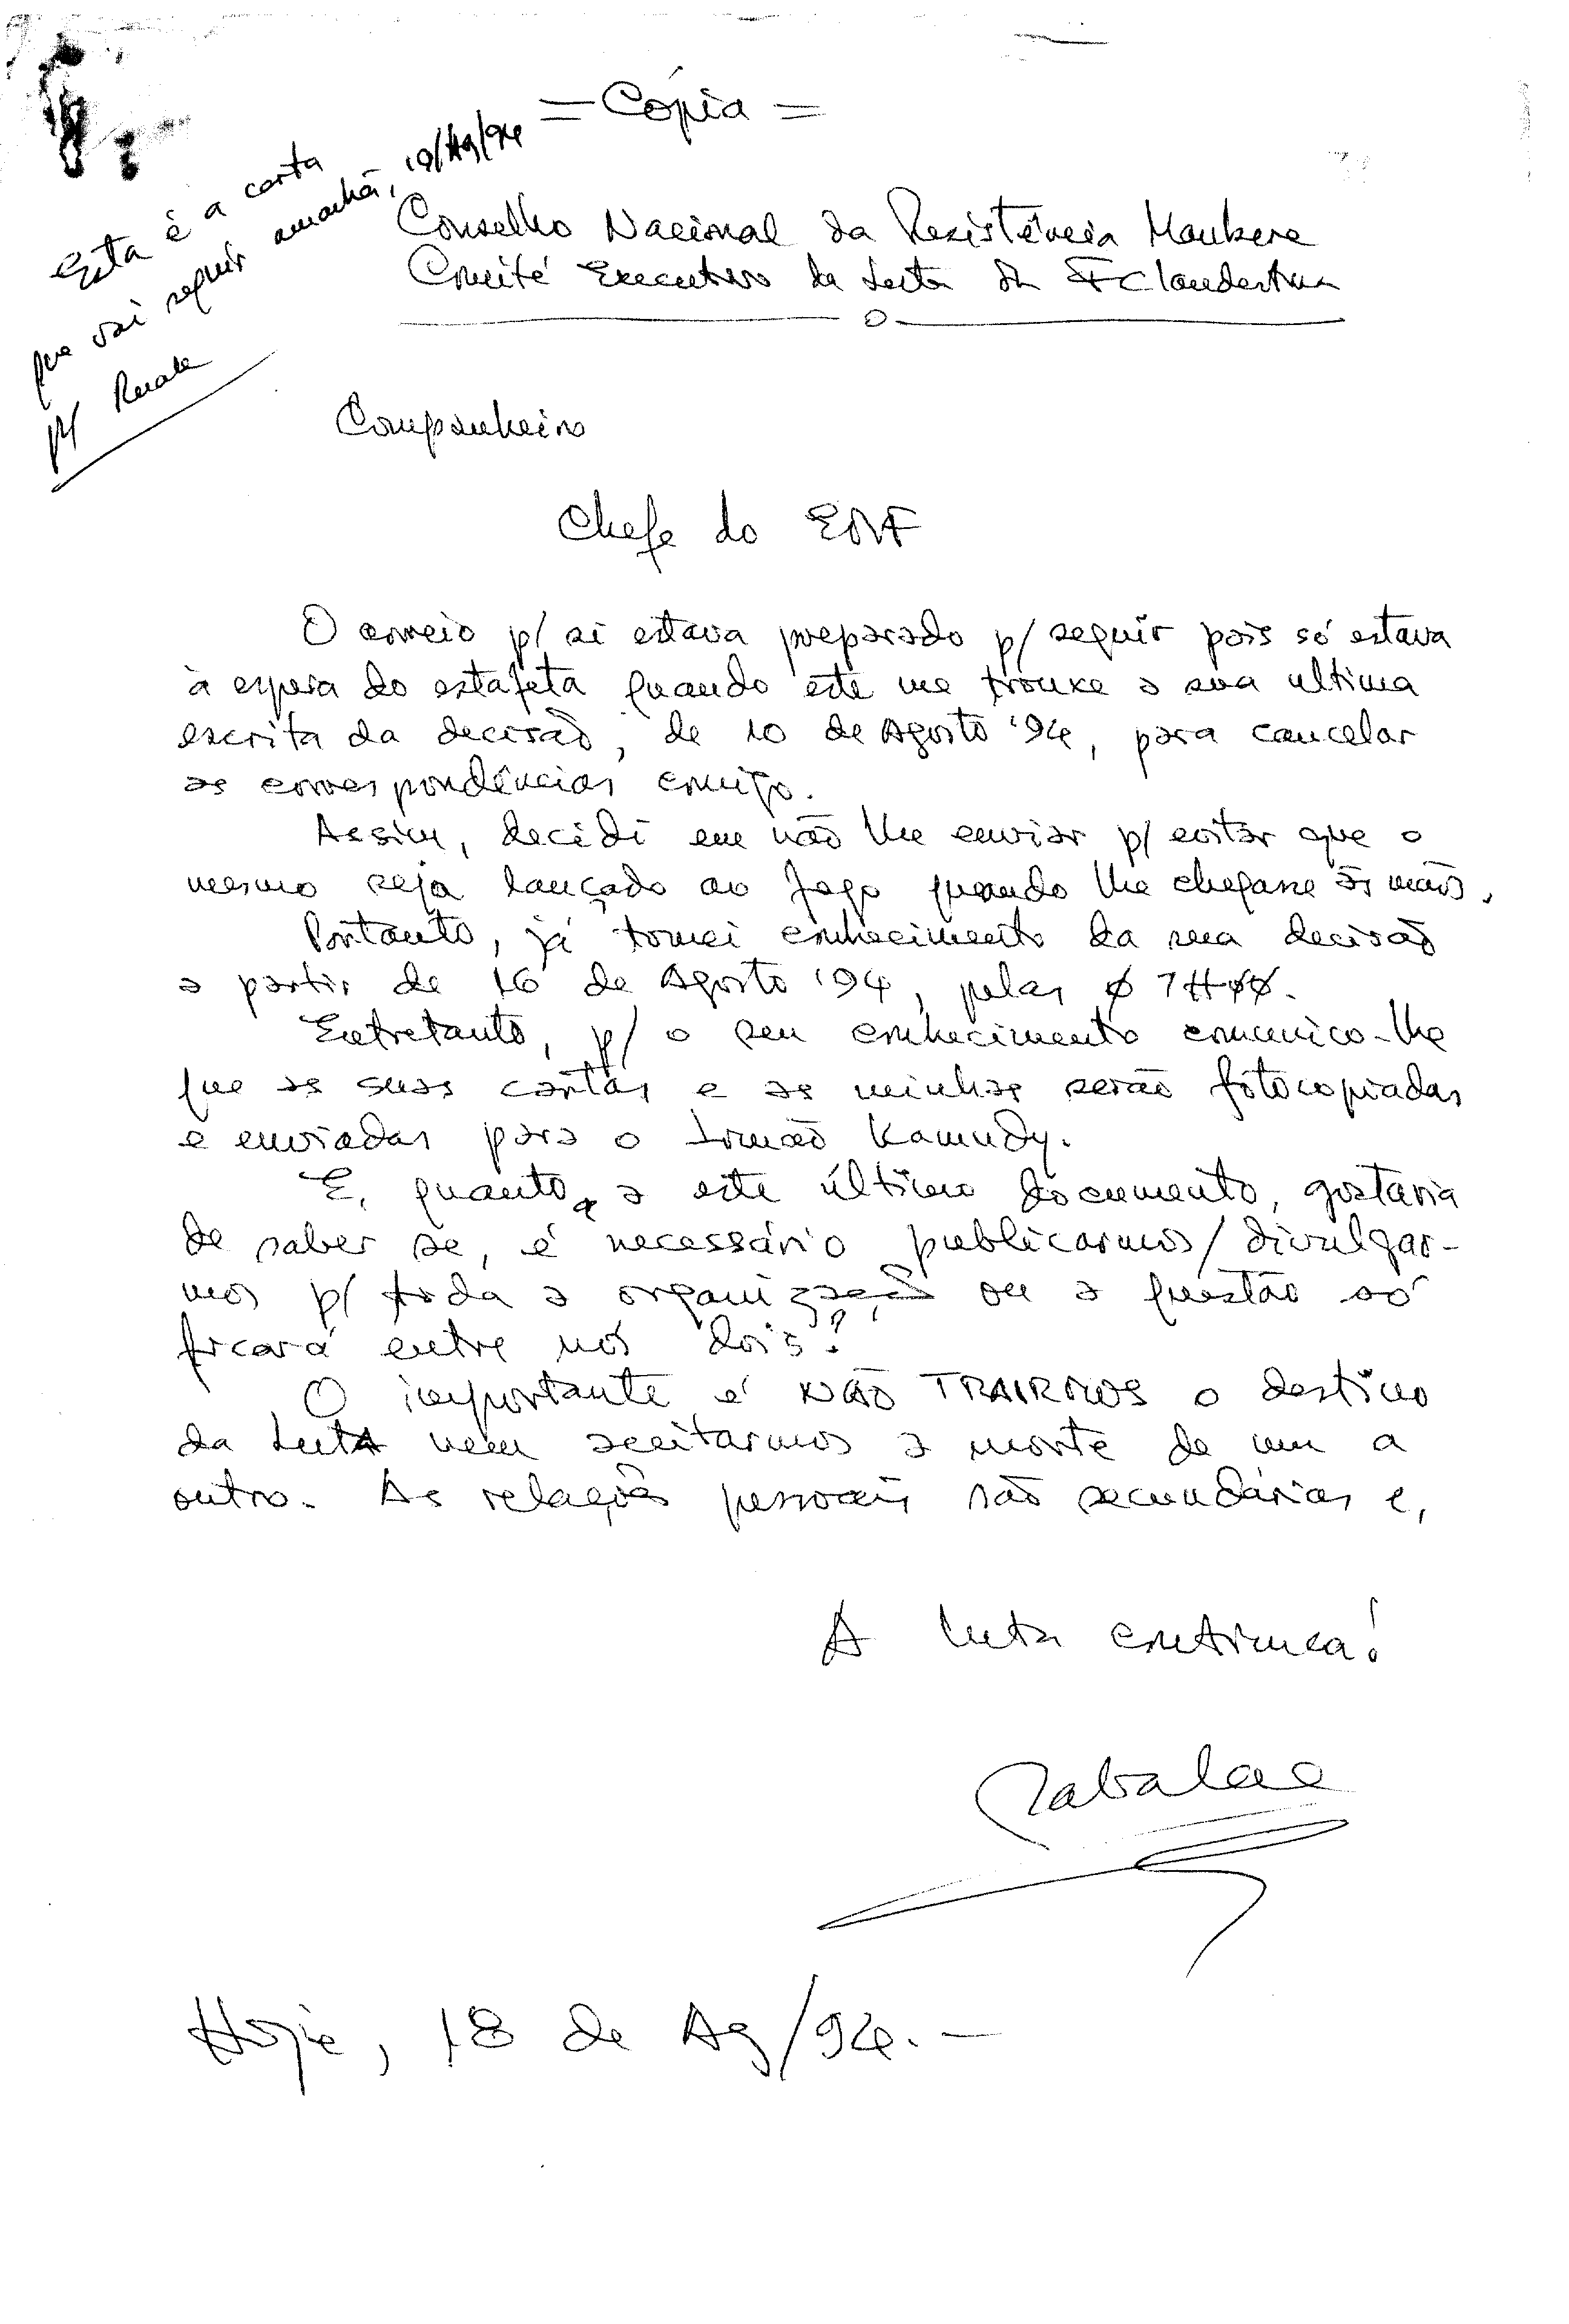 = Cópia =
Esta é a carta
que vai seguir amanhã, 19/Ag/94
p/ Ruak
Conselho Nacional da Resistência Maubere
Comité Executivo da Luta da F Clandestina
Companheiro
Chefe do EMF
O correio p/ ai estava preparado p/ seguir pois só estava
à espera do estafeta quando este me trouxe a sua ultima
escrita da decisão, de 10 de Agosto '94, para cancelar
as correspondências comigo.
Assim, decidi em não lhe enviar p/ evitar que o
mesmo seja lançado ao fogo quando lhe chegasse às mãos.
Portanto, já tomei conhecimento da sua decisão
a partir de 16 de Agosto '94, pelas 07H00.
Entretanto, p/ o seu conhecimento comunico-lhe
que as suas cartas e as minhas serão fotocopiadas
e enviadas para o Irmão Kamudy.
E, quanto a este último documento, gostaria
de saber se, é necessário publicarmos/divulgar-
mos p/ toda a organização ou a questão só
ficará entre nós dois?
O importante é NÃO TRAIRMOS o destino
da Luta nem aceitarmos a morte de um a
outro. As relações pessoais são secundárias e,
A luta continua!
Sabalae
Hoje, 18 de Ag/94.-